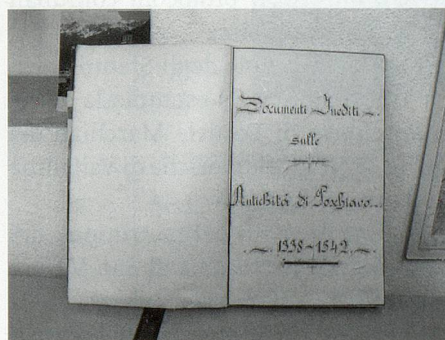 Documenti Inediti
sulle
Antichità di Poschiavo.
1338-1542.